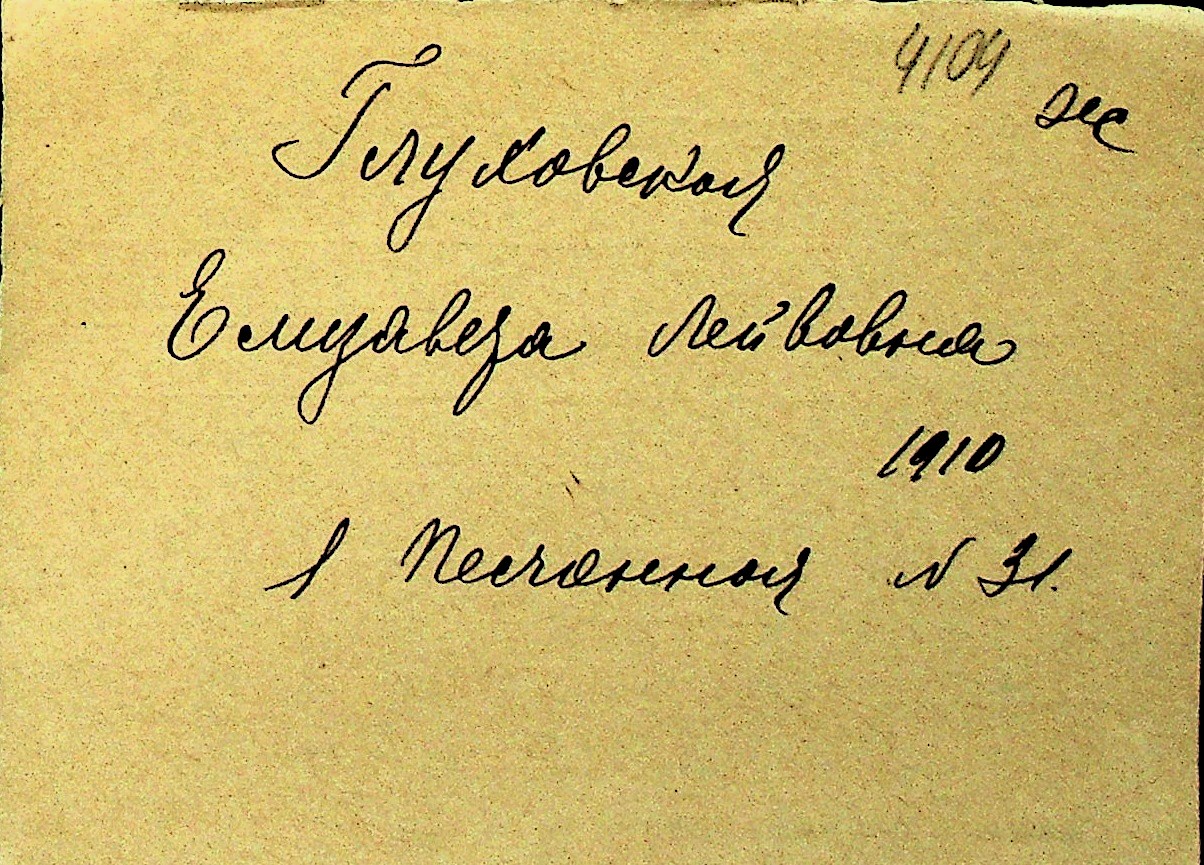 4104 ж
Глуховская
Елизавета Лейвовна
1910
1 Песчанная N 31.